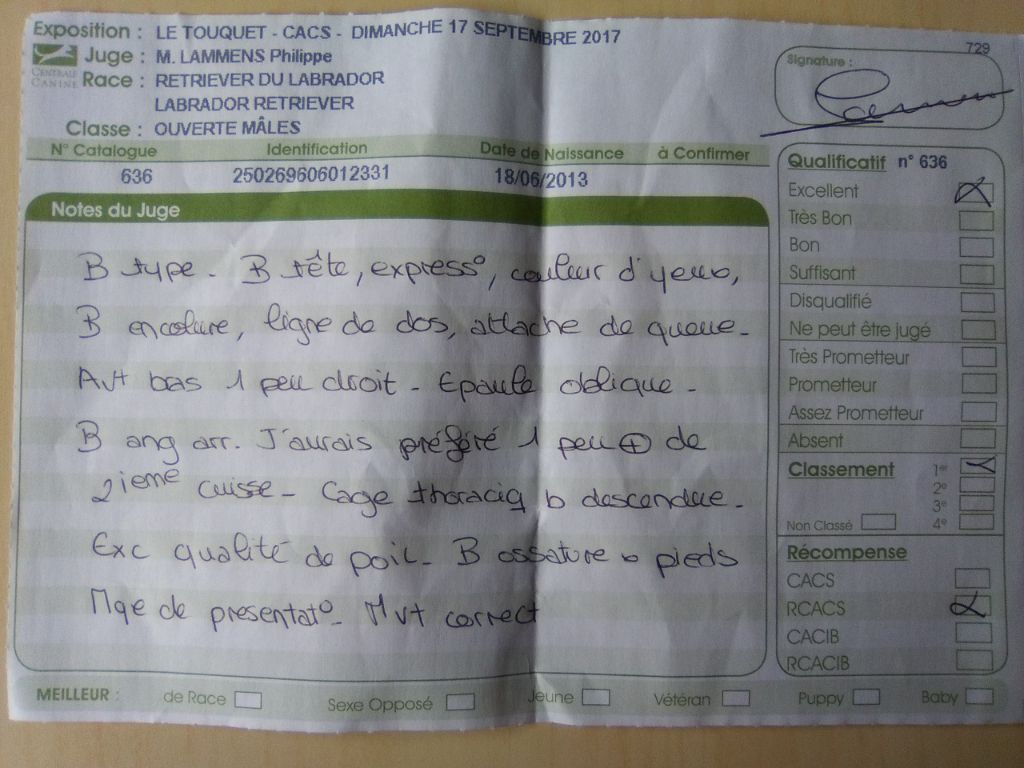 Exposition : LE TOUQUET - CACS - DIMANCHE 17 SEPTEMBRE 2017
Juge : M. LAMMENS Philippe
CENTRALE CANINE
Race : RETRIEVER DU LABRADOR
LABRADOR RETRIEVER
Classe : OUVERTE MÂLES
N° Catalogue Identification Date de Naissance à Confirmer
636 250269606012331 18/06/2013
Notes du Juge
B type - B tête, express°, couleur d'yeux,
B encolure, ligne de dos, attache de queue -
Avt bas 1 peu droit - Epaule oblique -
B ang arr. J'aurais préféré 1 peu ⊕ de
2ieme cuisse - Cage thoraciq b descendue -
Exc qualité de poil - B ossature b pieds
Mqe de presentat° - Mvt correct
729
Signature :
Qualificatif n° 636
Excellent
Très Bon
Bon
Suffisant
Disqualifié
Ne peut être jugé
Très Prometteur
Prometteur
Assez Prometteur
Absent
Classement 1er
2e
3e
Non Classé 4e
Récompense
CACS
RCACS
CACIB
RCACIB
MEILLEUR : de Race Sexe Opposé Jeune Vétéran Puppy Baby